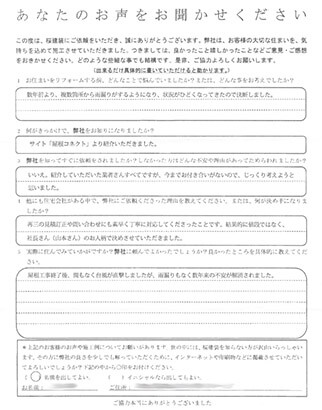 あなたのお声をお聞かせください
この度は、桜建装にご依頼をいただき、誠にありがとうございます。弊社は、お客様の大切な住まいを、気
持ちを込めて施工させていただきました。つきましては、良かったこと嬉しかったことなどご意見・ご感想
をおきかせください。どのような些細な事でも結構です。是非、ご協力よろしくお願いします。
（出来るだけ具体的に書いていただけると助かります。）
1 お住まいをリフォームする前、どんなことで悩んでいましたか？または、どんな事をお考えでしたか？
数年前より、複数箇所から雨漏りがするようになり、状況がひどくなってきたので決断しました。
2 何がきっかけで、弊社をお知りになりましたか？
サイト「屋根コネクト」より紹介いただきました。
3 弊社を知ってすぐに依頼をされましたか？しなかった方はどんな不安や理由があってためらわれましたか？
いいえ。紹介していただいた業者さんすべてですが、今までお付き合いがないので、じっくり考えようと
思いました。
4 他にも住宅会社がある中で、弊社にご依頼いただいた理由を教えてください。または、何が決めてになりま
したか？
再三の見積訂正や問い合わせにも素早く丁寧に対応してくださったことです。結果的に値段ではなく、
社長さん（山本さん）のお人柄で決めさせていただきました。
5 実際に住んでみていかがですか？弊社に頼んでよかったでしょうか？良かったところを具体的に教えてくだ
さい。
屋根工事終了後、間もなく台風が直撃しましたが、雨漏りもなく数年来の不安が解消されました。
＊上記のお客様のお声や施工例についてお願いがあります。世の中には、桜建装を知らない方が沢山いらっしゃいま
す。その方に弊社の良さを少しでも解っていただくために、インターネットや印刷物などに掲載させていただい
てよろしいでしょうか？下記の中から〇印をお付けください。
（ 〇 ）名前を出してよい。 （ ）イニシャルなら出してもよい。
お名前 ご住所
ご協力本当にありがとうございました